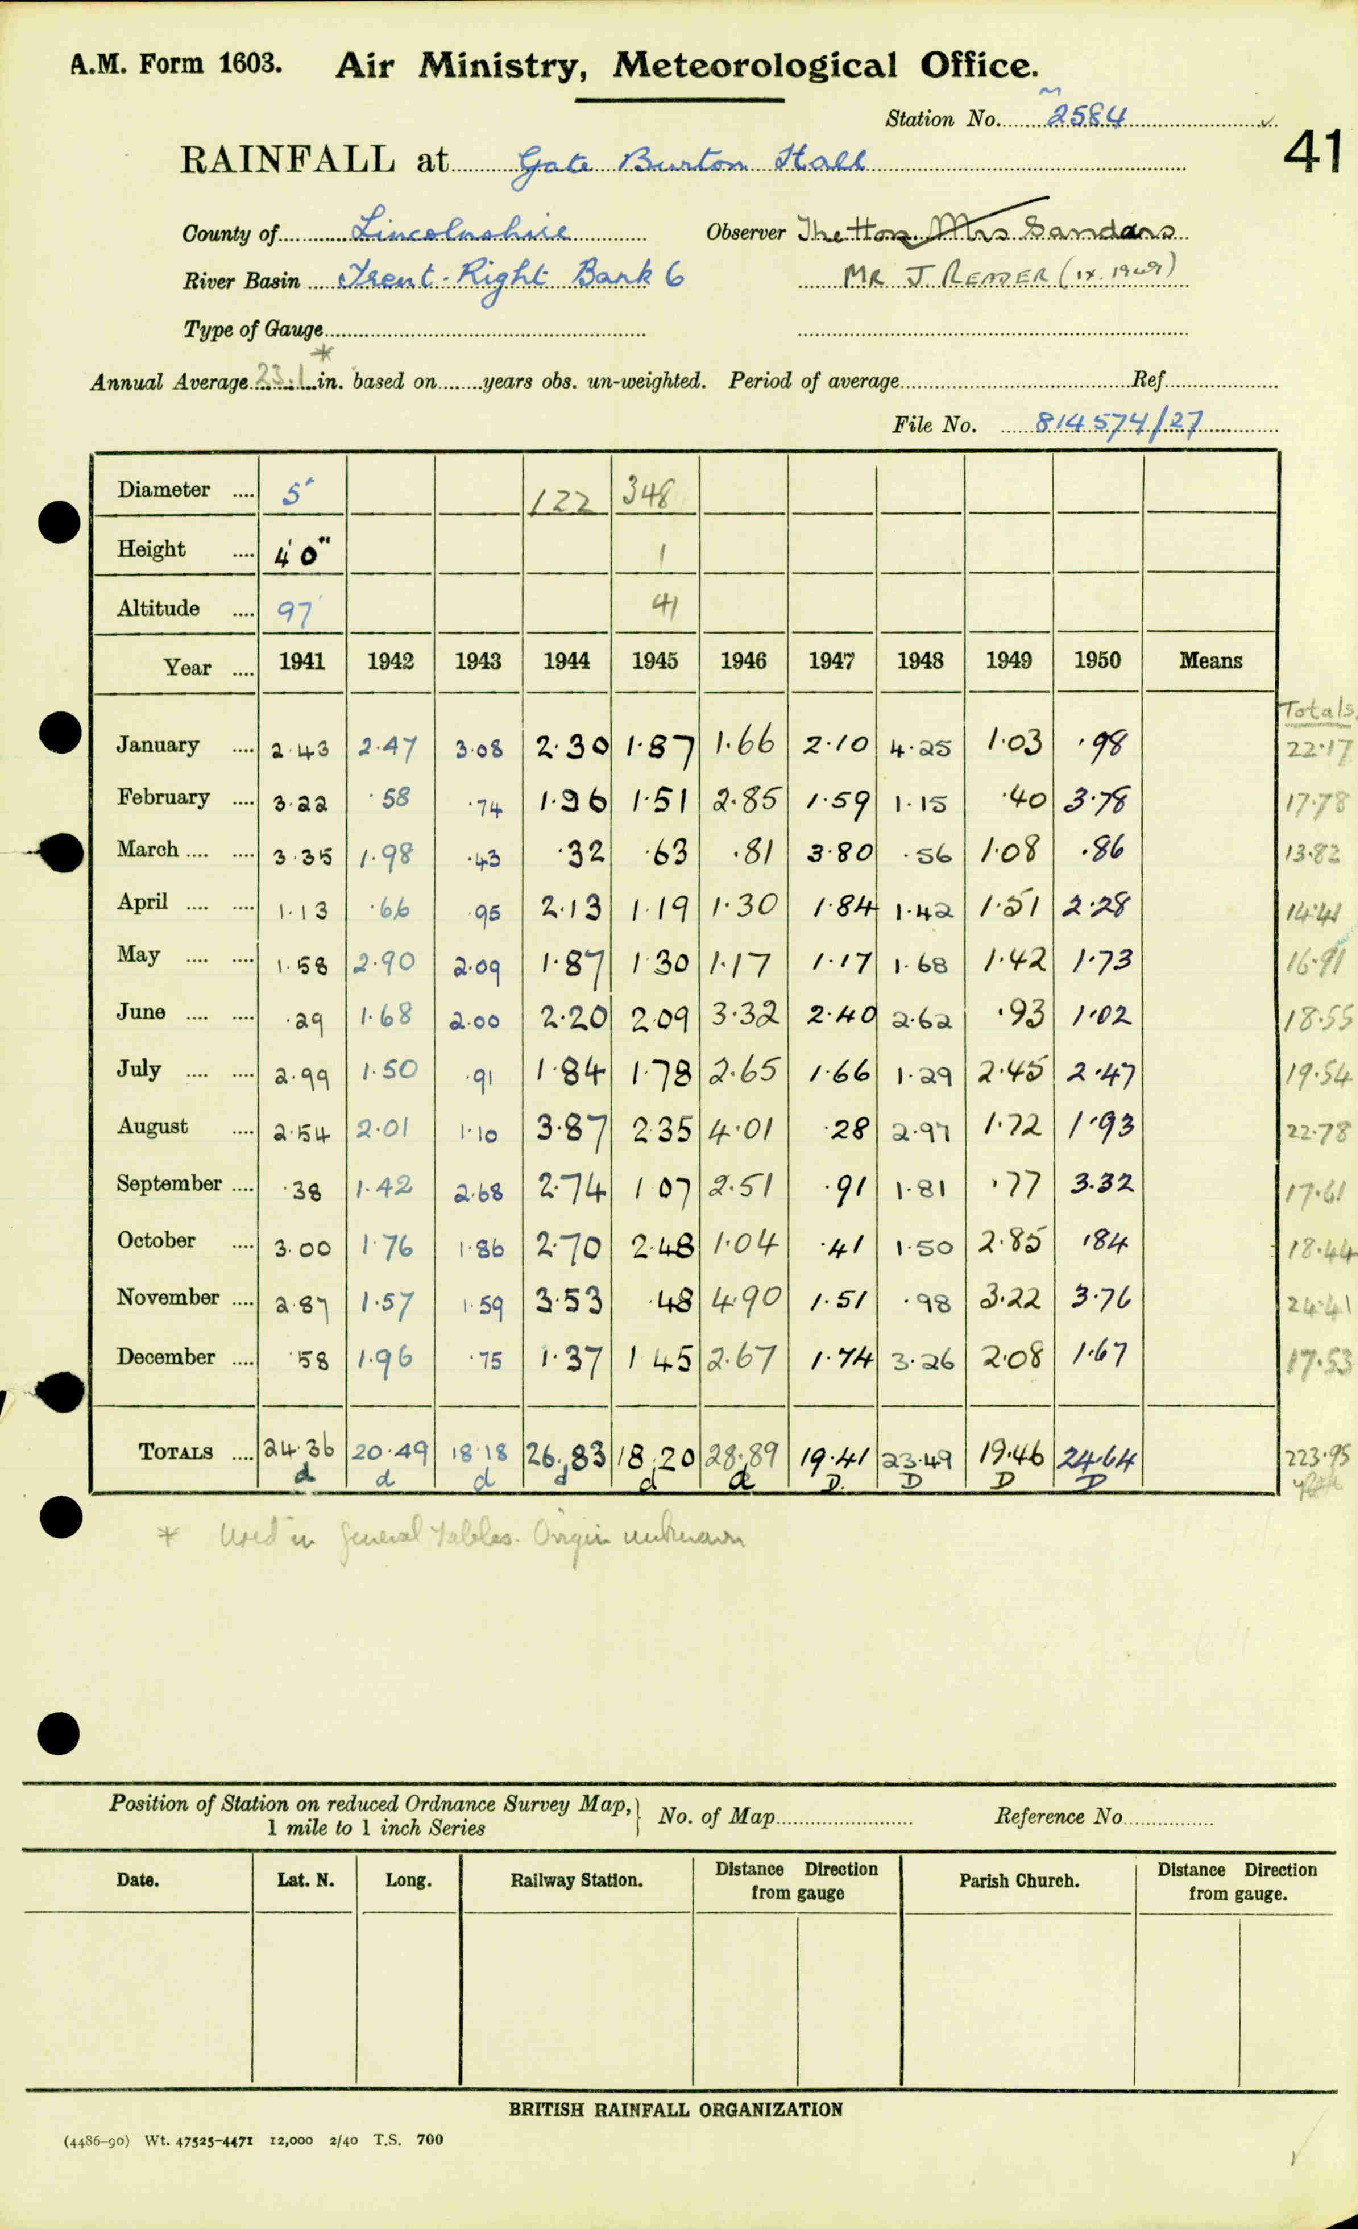 A.M. Form 1603. Air Ministry, Meteorological Office.
Station No. 2584
41
RAINFALL at Gate Burton Hall
County of Lincolnshire Observer The Hon. Mrs Sandars
River Basin Trent - Right Bank 6 MR J. READER (IX. 1949)
Type of Gauge
Annual Average 23.1* in. based on years obs. un-weighted. Period of average Ref.
File No. 814574/27
Diameter .... 5" 122 348
Height .... 4'0" 1
Altitude .... 97' 41
Year .... 1941 1942 1943 1944 1945 1946 1947 1948 1949 1950 Means
Totals
January .... 2.43 2.47 3.08 2.30 1.87 1.66 2.10 4.25 1.03 .98 22.17
February .... 3.22 .58 .74 1.96 1.51 2.85 1.59 1.15 .40 3.78 17.78
March .... .... 3.35 1.98 .43 .32 .63 .81 3.80 .56 1.08 .86 13.82
April .... .... 1.13 .66 .95 2.13 1.19 1.30 1.84 1.42 1.51 2.28 14.41
May .... .... 1.58 2.90 2.09 1.87 1.30 1.17 1.17 1.68 1.42 1.73 16.91
June .... .... .29 1.68 2.00 2.20 2.09 3.32 2.40 2.62 .93 1.02 18.55
July .... .... 2.99 1.50 .91 1.84 1.78 2.65 1.66 1.29 2.45 2.47 19.54
August .... 2.54 2.01 1.10 3.87 2.35 4.01 .28 2.97 1.72 1.93 22.78
September .... .38 1.42 2.68 2.74 1.07 2.51 .91 1.81 .77 3.32 17.61
October .... 3.00 1.76 1.86 2.70 2.48 1.04 .41 1.50 2.85 .84 18.44
November .... 2.87 1.57 1.59 3.53 .48 4.90 1.51 .98 3.22 3.76 24.41
December .... .58 1.96 .75 1.37 1.45 2.67 1.74 3.26 2.08 1.67 17.53
TOTALS .... 24.36 20.49 18.18 26.83 18.20 28.89 19.41 23.49 19.46 24.64 223.95
d d d d d d D. D D D
* Used in general tables. Origin unknown
Position of Station on reduced Ordnance Survey Map, 1 mile to 1 inch Series } No. of Map Reference No.
Date. Lat. N. Long. Railway Station. Distance Direction from gauge Parish Church. Distance Direction from gauge.
BRITISH RAINFALL ORGANIZATION
(4486-90) Wt. 47525-4471 12,000 2/40 T.S. 700